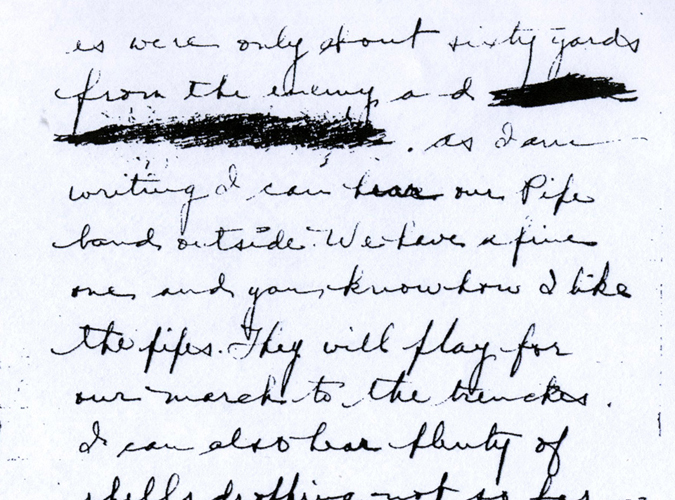 es were only about sixty yards
from the enemy a d
. as I am
writing I can hear our Pipe
band outside. We have a fine
one and you know how I like
the pipes. They will play for
our march to the trenches.
I can also hear plenty of
shells dropping not so